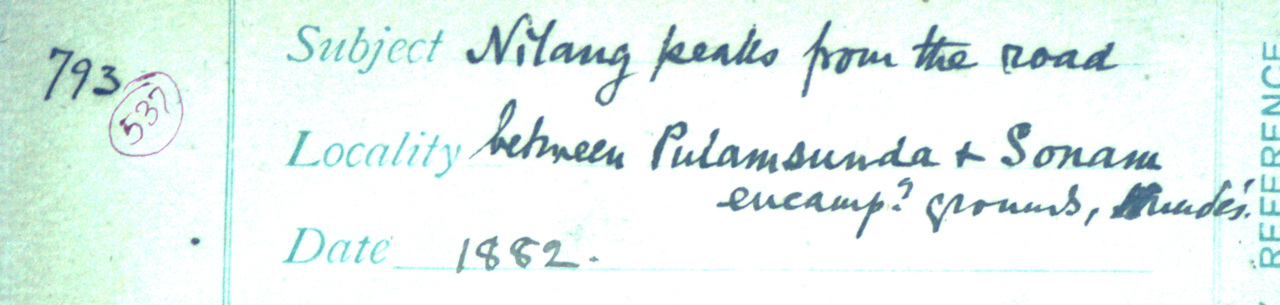 793
537
Subject Nilang peaks from the road
Locality between Pulamsunda & Sonam
encamp? grounds,
Date 1882.
REFERENCE